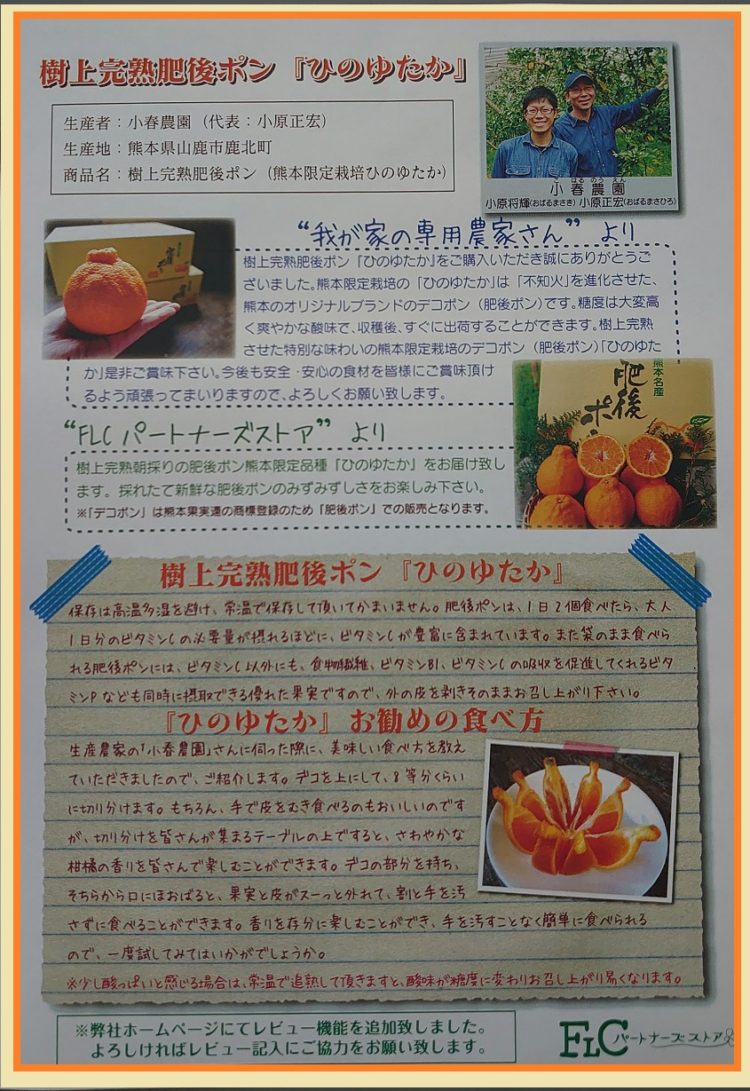 樹上完熟肥後ポン『ひのゆたか』
生産者：小春農園（代表：小原正宏）
生産地：熊本県山鹿市鹿北町
商品名：樹上完熟肥後ポン（熊本限定栽培ひのゆたか）
小春農園
小原将輝(おばるまさき) 小原正宏(おばるまさひろ)
“我が家の専用農家さん”より
樹上完熟肥後ポン「ひのゆたか」をご購入いただき誠にありがとうご
ざいました。熊本限定栽培の「ひのゆたか」は「不知火」を進化させた、
熊本のオリジナルブランドのデコポン（肥後ポン）です。糖度は大変高
く爽やかな酸味で、収穫後、すぐに出荷することができます。樹上完熟
させた特別な味わいの熊本限定栽培のデコポン（肥後ポン）「ひのゆた
か」是非ご賞味下さい。今後も安全・安心の食材を皆様にご賞味頂け
るよう頑張ってまいりますので、よろしくお願い致します。
熊本名産
肥後ポン
“FLCパートナーズストア”より
樹上完熟朝採りの肥後ポン熊本限定品種「ひのゆたか」をお届け致し
ます。採れたて新鮮な肥後ポンのみずみずしさをお楽しみ下さい。
※「デコポン」は熊本果実連の商標登録のため「肥後ポン」での販売となります。
樹上完熟肥後ポン『ひのゆたか』
保存は高温多湿を避け、常温で保存して頂いてかまいません。肥後ポンは、1日2個食べたら、大人
1日分のビタミンCの必要量が摂れるほどに、ビタミンCが豊富に含まれています。また袋のまま食べら
れる肥後ポンには、ビタミンC以外にも、食物繊維、ビタミンB1、ビタミンCの吸収を促進してくれるビタ
ミンPなども同時に摂取できる優れた果実ですので、外の皮を剥きそのままお召し上がり下さい。
『ひのゆたか』お勧めの食べ方
生産農家の「小春農園」さんに伺った際に、美味しい食べ方を教え
ていただきましたので、ご紹介します。デコを上にして、8等分くらい
に切り分けます。もちろん、手で皮をむき食べるのもおいしいのです
が、切り分けを皆さんが集まるテーブルの上ですると、さわやかな
柑橘の香りを皆さんで楽しむことができます。デコの部分を持ち、
そちらから口にほおばると、果実と皮がスーっと外れて、割と手を汚
さずに食べることができます。香りを存分に楽しむことができ、手を汚すことなく簡単に食べられる
ので、一度試してみてはいかがでしょうか。
※少し酸っぱいと感じる場合は、常温で追熟して頂きますと、酸味が糖度に変わりお召し上がり易くなります。
※弊社ホームページにてレビュー機能を追加致しました。
よろしければレビュー記入にご協力をお願い致します。
FLCパートナーズストア